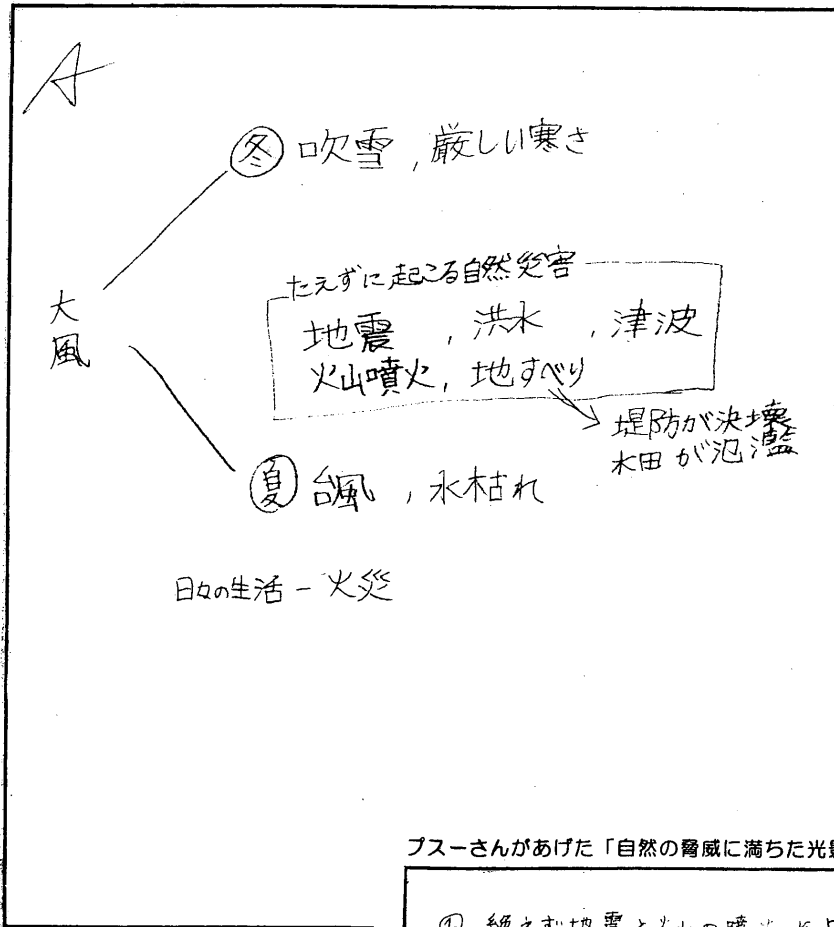 A
冬 吹雪,厳しい寒さ
たえずに起こる自然災害
地震,洪水,津波
火山噴火,地すべり
堤防が決壊
水田が氾濫
大風
夏 台風,水枯れ
日々の生活-火災
プスーさんがあげた「自然の脅威に満ちた光景
① 絶えず地震と火山の噴火